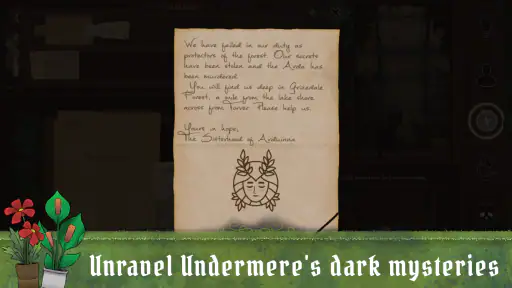 We have failed in our duty as
protectors of the forest. Our secrets
have been stolen and the Arda has
been murdered.
You will find us deep in Grisedale
Forest, a mile from the lake shore
across from Turver. Please help us.
Yours in hope,
The Sisterhood of Arduinna
Unravel Undermere's dark mysteries